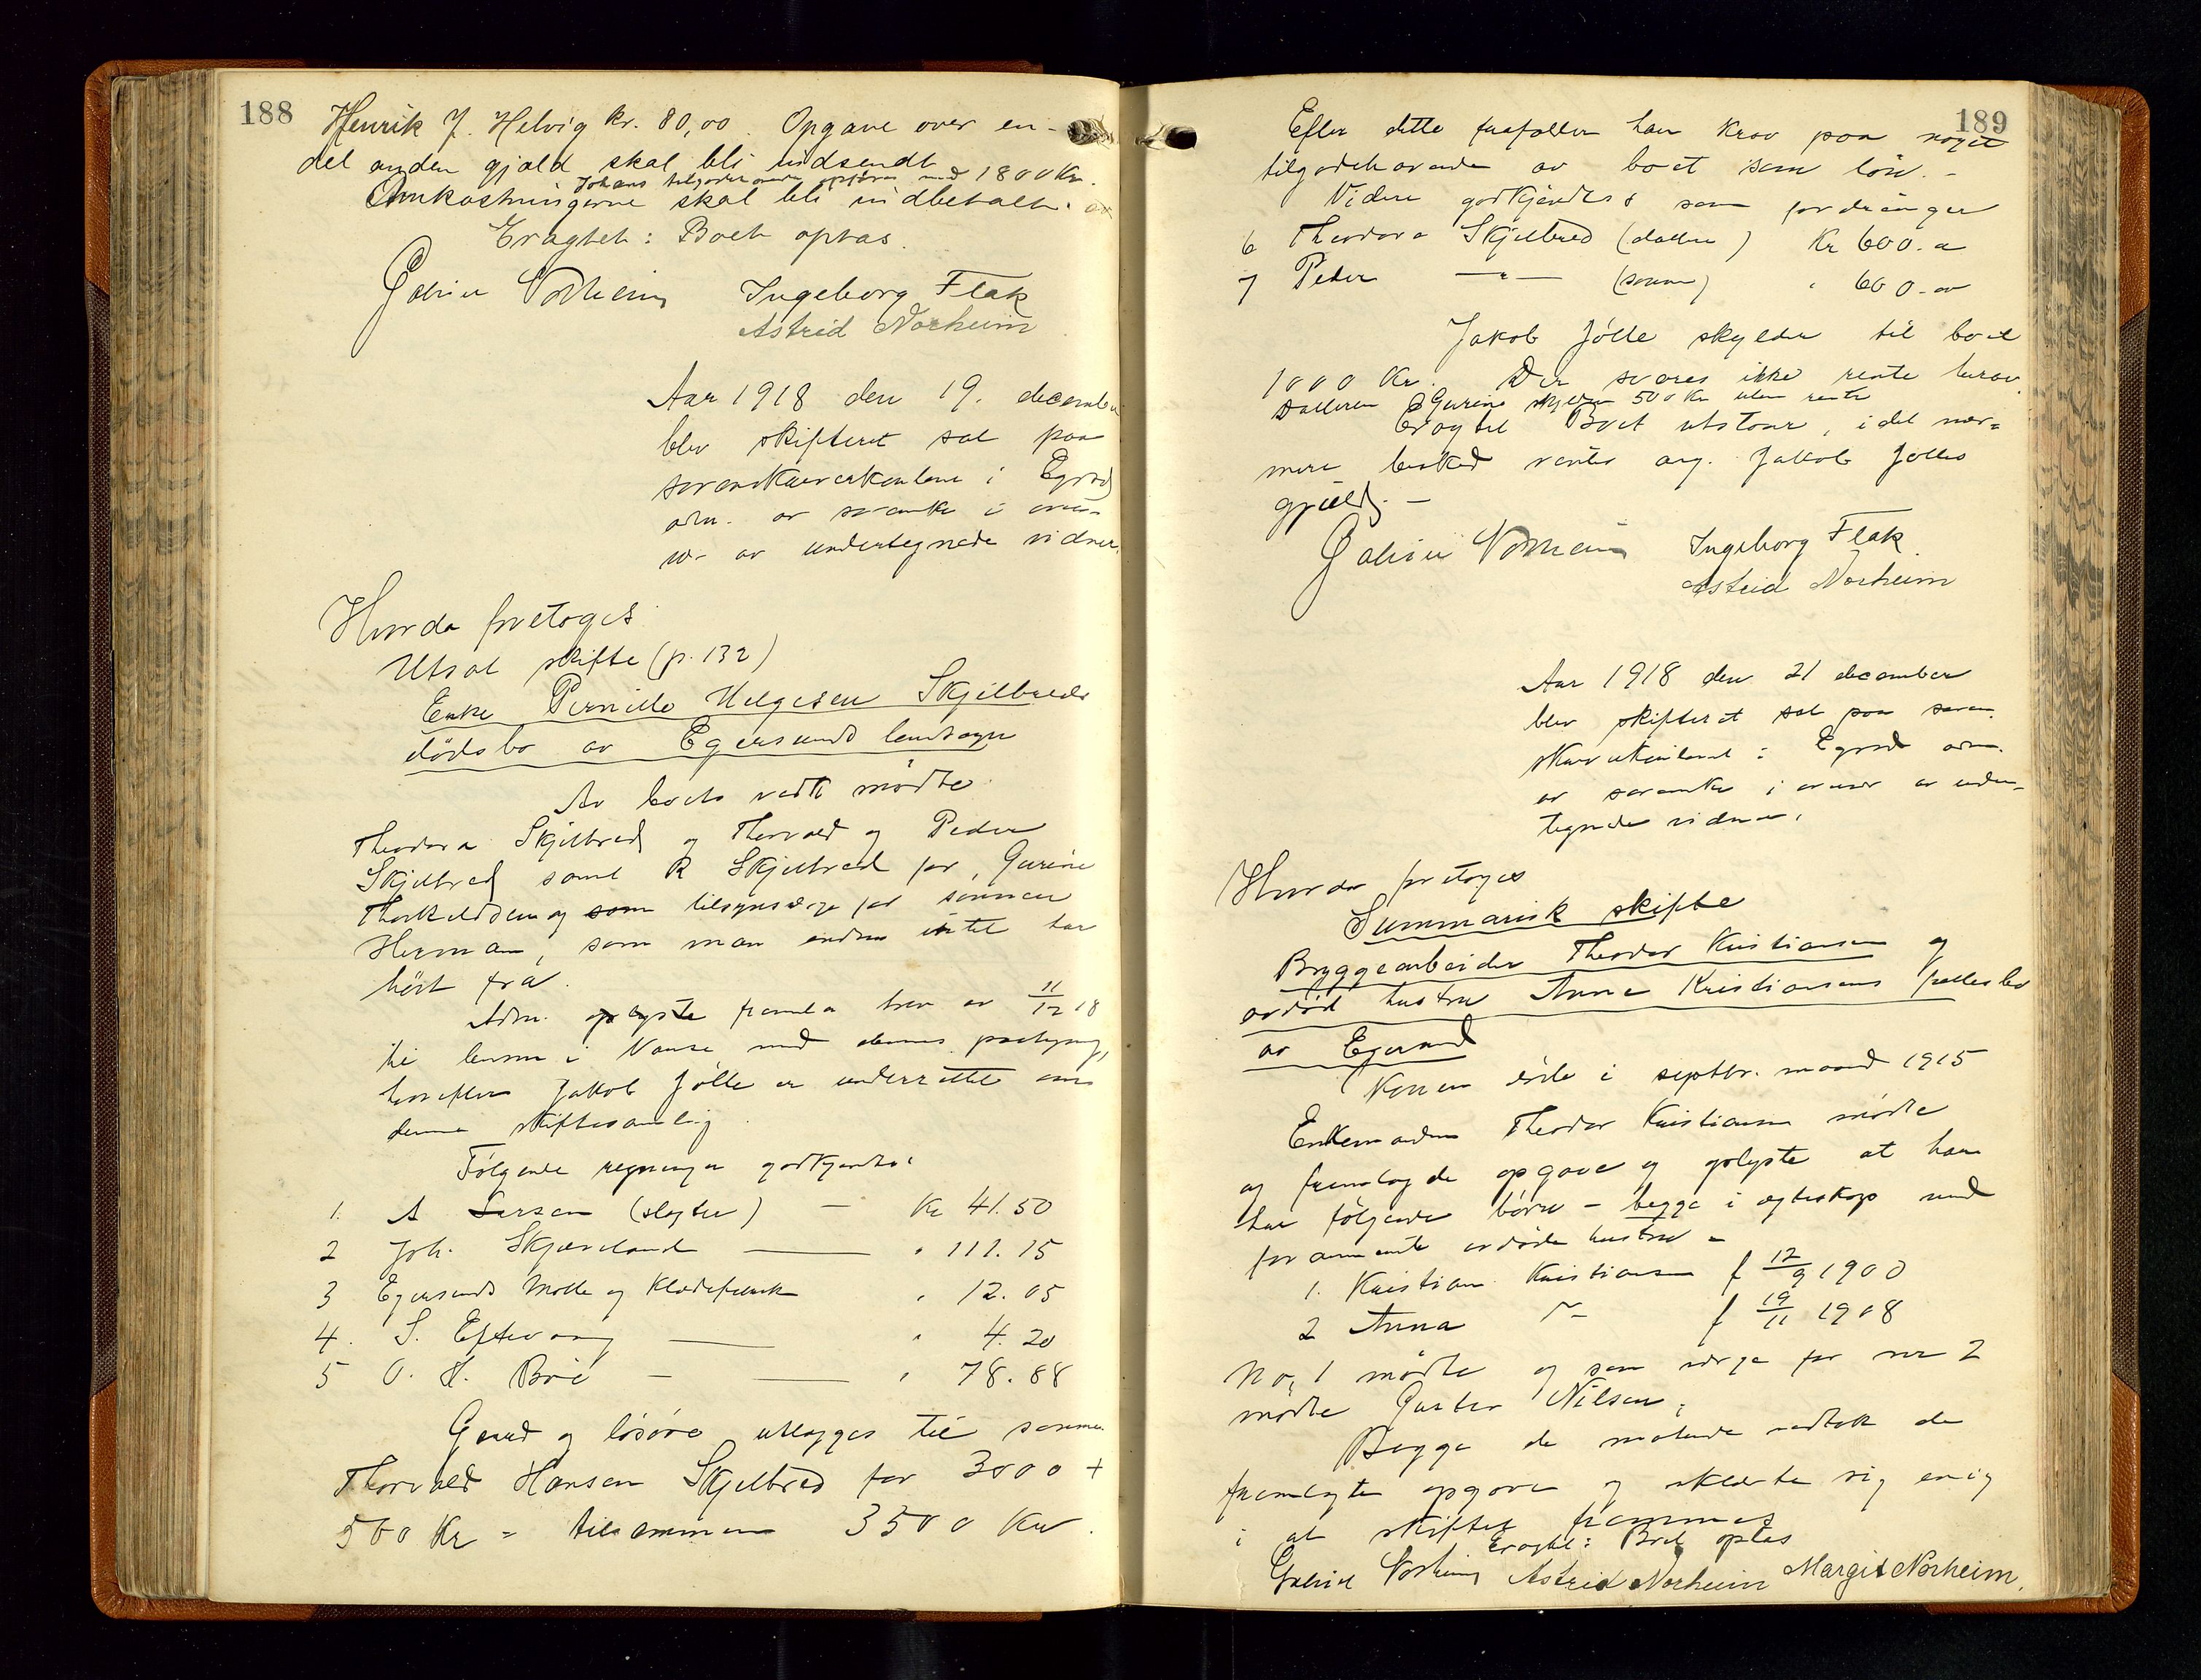 188
Henrik J. Helvig kr. 80,00. Opgave over en-
del anden gjæld skal bli indsendt
Johans tilgodehavende opføres med 1800 Kr.
Omkostningerne skal bli indbetalt.
Eragtet: Boet optas.
Gabriel Norheim Ingeborg Flak
Astrid Norheim
Aar 1918 den 19. december
blev skifteret sat paa
sorenskriverkontoret i Egrsd
adm. av sorenskr i overv-
w- av undertegnede vidner.
Hvorda foretoges
Utsat skifte (p. 132)
Enke Pernille Helgesen Skjelbreds
dødsbo av Egersunds landsogn
Av boets vedk mødte
Theodora Skjelbred og Thorvald og Peder
Skjelbred samt R Skjelbred for Gurine
Thorkeldsen og som tilsynsverge for sønnen
Herman, som man endnu intet har
hørt fra.
Adm. oplyste fremla brev av 11/12 18
til lensm i Vanse med dennes paategng,
hvorefter Jakob Jølle er underrettet om
denne skiftesamling.
Følgende regninger godkjendtes:
1. A Larsen (slagter) — Kr 41.50
2 Joh. Skjæveland — " 111.15
3 Egersunds Mølle og Klædefabrik " 12.05
4. S. Eftevaag — " 4.20
5 O. H. Bøe — " 78.88
Gaard og løsøre utlægges til sønnen
Thorvald Hansen Skjelbred for 3000 +
500 Kr = tilsammen 3500 Kr.
189
Efter dette frafaller han krav paa noget
tilgodehavende av boet som løn. -
Videre godkjendtes som fordringer
6 Theodora Skjelbred (datter) Kr 600.00
7 Peder —"— (sønn) " 600.00
Jakob Jølle skylder til boet
1000 Kr. Der svares ikke rente herav.
Datteren Gurine skylder 500 Kr uten rente
Eragtet Boet utstaar, i det nær-
mere besked ventes ang. Jakob Jølles
gjæld. -
Gabriel Norheim Ingeborg Flak
Astrid Norheim
Aar 1918 den 21 december
blev skifteret sat paa soren
skriverkontoret i Egrsd adm.
av sorenskr i overvær av under-
tegnede vidner.
Hvorda foretoges
Summarisk skifte
Bryggearbeider Theodor Kristiansen og
avdød hustru Anna Kristiansens fællesbo
av Egersund
Konen døde i septbr. maaned 1915
Enkemanden Theodor Kristiansen mødte
og fremlagde opgave og oplyste at han
har følgende børn - begge i egteskap med
forannevnte avdøde hustru -
1. Kristian Kristiansen f 12/9 1900
2 Anna "- f 19/11 1908
No, 1 mødte og som verge for no 2
mødte Gustav Nilsen.
Begge de møtende vedtok de
fremlagte opgave og erklærte sig enig
i at skiftet fremmes
Eragtet: Boet optas
Gabriel Norheim Astrid Norheim Margit Norheim.